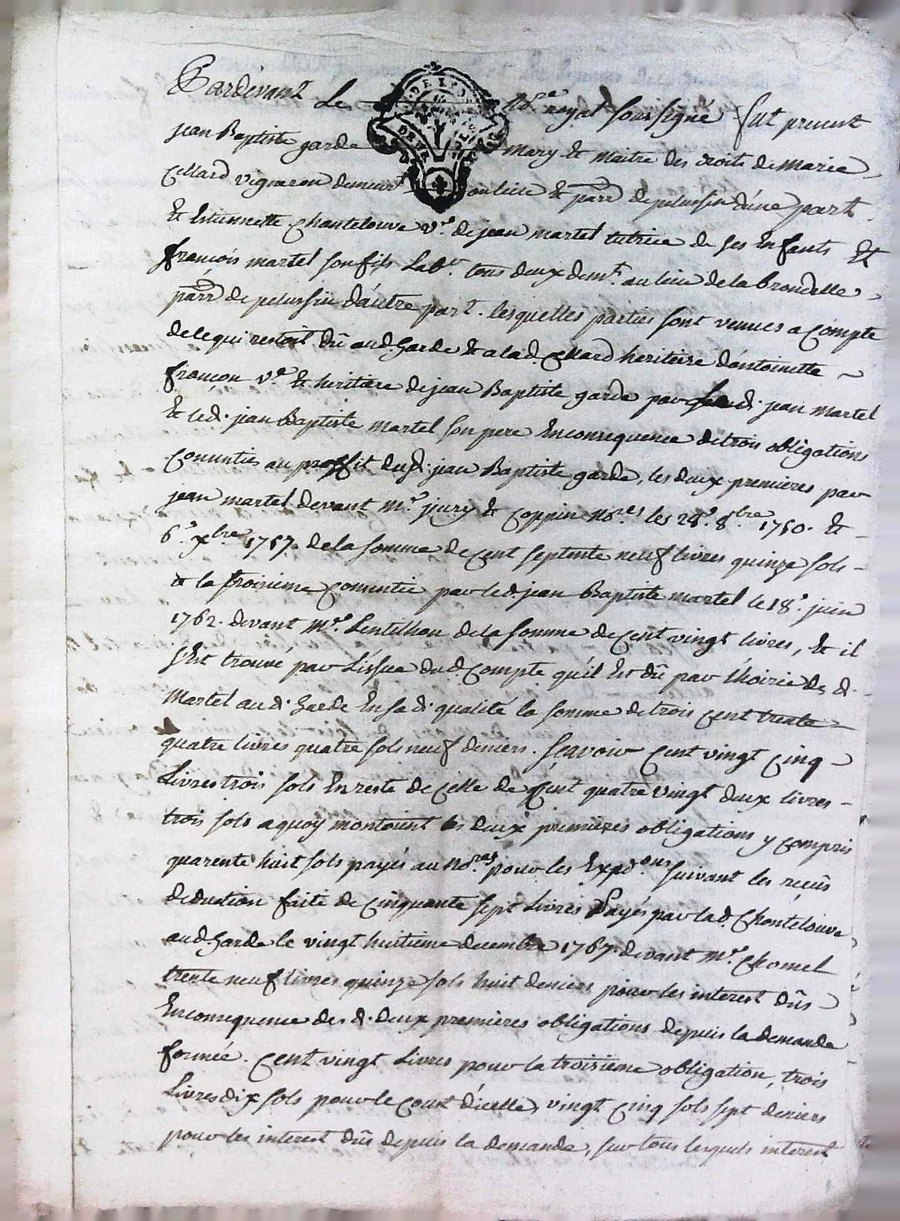 Pardevant Le No.re royal soussigné fut present
jean Baptiste garde mary et maitre des droits de marie
Chard vigneron demeur.t au lieu et parr. de pelussin d'une part
Et Etiennette Chantelouve v.e de jean martel tutrice de ses Enfants Et
francois martel son fils Lab.r tous deux dem.t au lieu de la brondelle
parr. de pelussin d'autre part. lesquelles parties sont venues a Compte
de ce qui restoit dû aud. Garde et a lad. Chard heritiere d'antoinette
francon v.e et heritiere de jean Baptiste garde par led. jean martel
Et led. jean Baptiste martel son pere En consequence de trois obligations
Consenties au proffit dud. jean Baptiste garde, les deux premieres par
jean martel devant M.e jury et Coppin no.res les 28.e 8bre 1750. et
6.e xbre 1757. de la somme de Cent septente neuf livres quinze sols
et la troisieme Consentie par led. jean Baptiste martel le 18.e juin
1762. devant M.e Lentilhon de la somme de Cent vingt livres, Et il
s'Est trouvé par L'issue dud. Compte qu'il Est dû par l'hoirie des d.
Martel aud. Garde En sa d. qualité la somme de trois Cent trente
quatre livres quatre sols neuf deniers. Scavoir Cent vingt Cinq
Livres trois sols En reste de Celle de Cent quatre vingt deux livres
trois sols a quoy montoient les deux premieres obligations y compris
quarente huit sols payés au no.res pour les Exped.ons suivant les reçus
deduction faite de Cinquante sept Livres Payés par lad. Chantelouve
aud. Garde le vingt huitieme decembre 1767. devant M.e Chomel
trente neuf livres quinze sols huit deniers pour les interest dûs
En consequence des d. deux premieres obligations depuis la demande
formée. Cent vingt Livres pour la troisieme obligation, trois
Livres dix sols pour le Cout d'icelle, vingt Cinq sols sept deniers
pour les interest dûs depuis la demande, sur tous lesquels interest